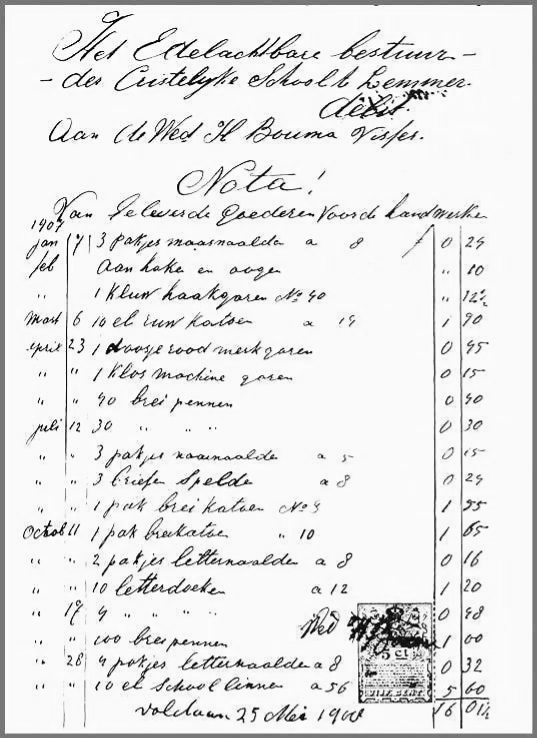 Het Edelachtbare bestuur -
- der Cristelyke School te Lemmer.
debit.
Aan de Wed H Bouma Visser.
Nota!
Van Geleverde Goederen voor de handwerken
1907
jan 7 3 pakjes maasnaalden a 8 0 24
feb aan haken en oogen " 10
" 1 Kluw haakgaren No 40 " 12½
Mart 6 10 el ruw katoen a 19 1 90
april 23 1 doosje rood merkgaren 0 45
" " 1 Klos machine garen 0 15
" " 40 brei pennen 0 40
juli 12 30 " " " 0 30
" " 3 pakjes naainaalden a 5 0 15
" " 3 briefen Spelden a 8 0 24
" " 1 pak brei katoen No 9 1 55
Octob 11 1 pak breikatoen " 10 1 65
" " 2 pakjes letternaalden a 8 0 16
" " 10 letterdoeken a 12 1 20
" 17 4 " " " 0 48
" " 100 breipennen 1 00
" 28 4 pakjes letternaalden a 8 0 32
" " 10 el School linnen a 56 5 60
16 01½
Wed H Bouma
5 ct
VIJF CENT
voldaan 25 Mei 1908